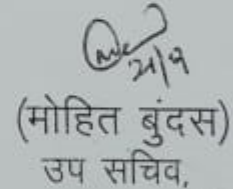 (मोहित बुंदस)
उप सचिव,